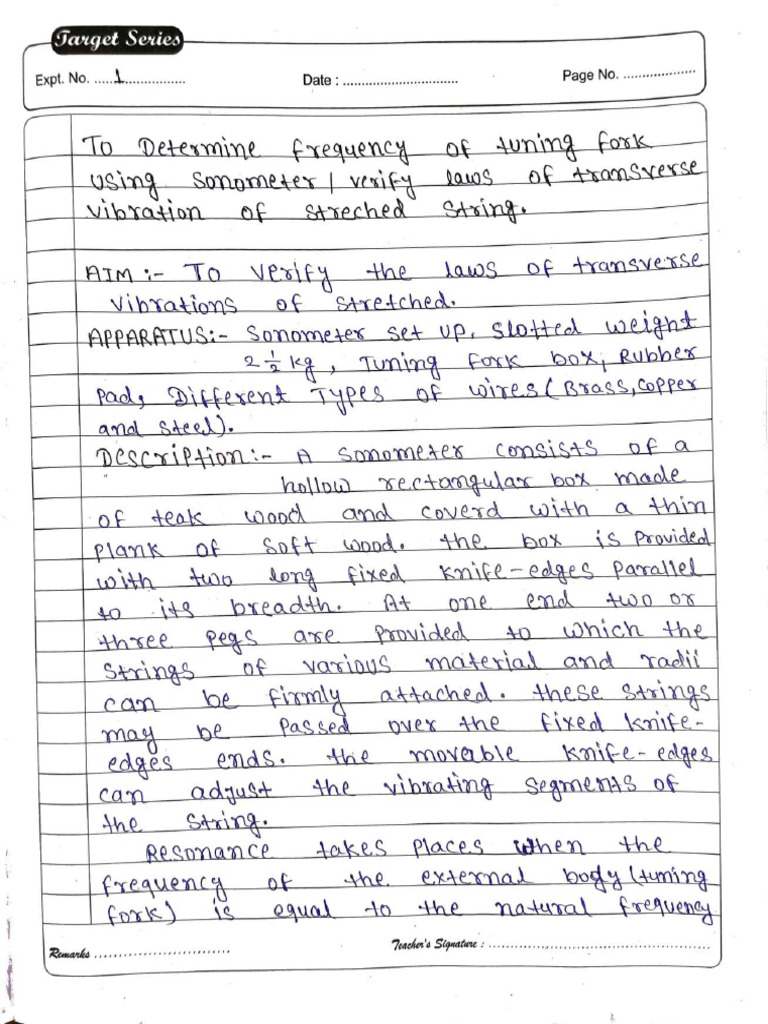 Target Series
Expt. No. .....1................ Date : .............................. Page No. ...................
To Determine frequency of tuning fork
using sonometer / verify laws of transverse
vibration of streched string.
AIM :- To verify the laws of transverse
vibrations of stretched.
APPARATUS:- Sonometer set up, slotted weight
2 1/2 kg, Tuning fork box, Rubber
pad, Different Types of wires (Brass, Copper
and steel).
Description:- A sonometer consists of a
hollow rectangular box made
of teak wood and coverd with a thin
plank of soft wood. the box is provided
with two long fixed knife-edges parallel
to its breadth. At one end two or
three pegs are provided to which the
strings of various material and radii
can be firmly attached. these strings
may be passed over the fixed knife-
edges ends. the movable knife-edges
can adjust the vibrating segments of
the string.
Resonance takes places when the
frequency of the external body (tuning
fork) is equal to the natural frequency
Remarks ............................ Teacher's Signature : .............................................